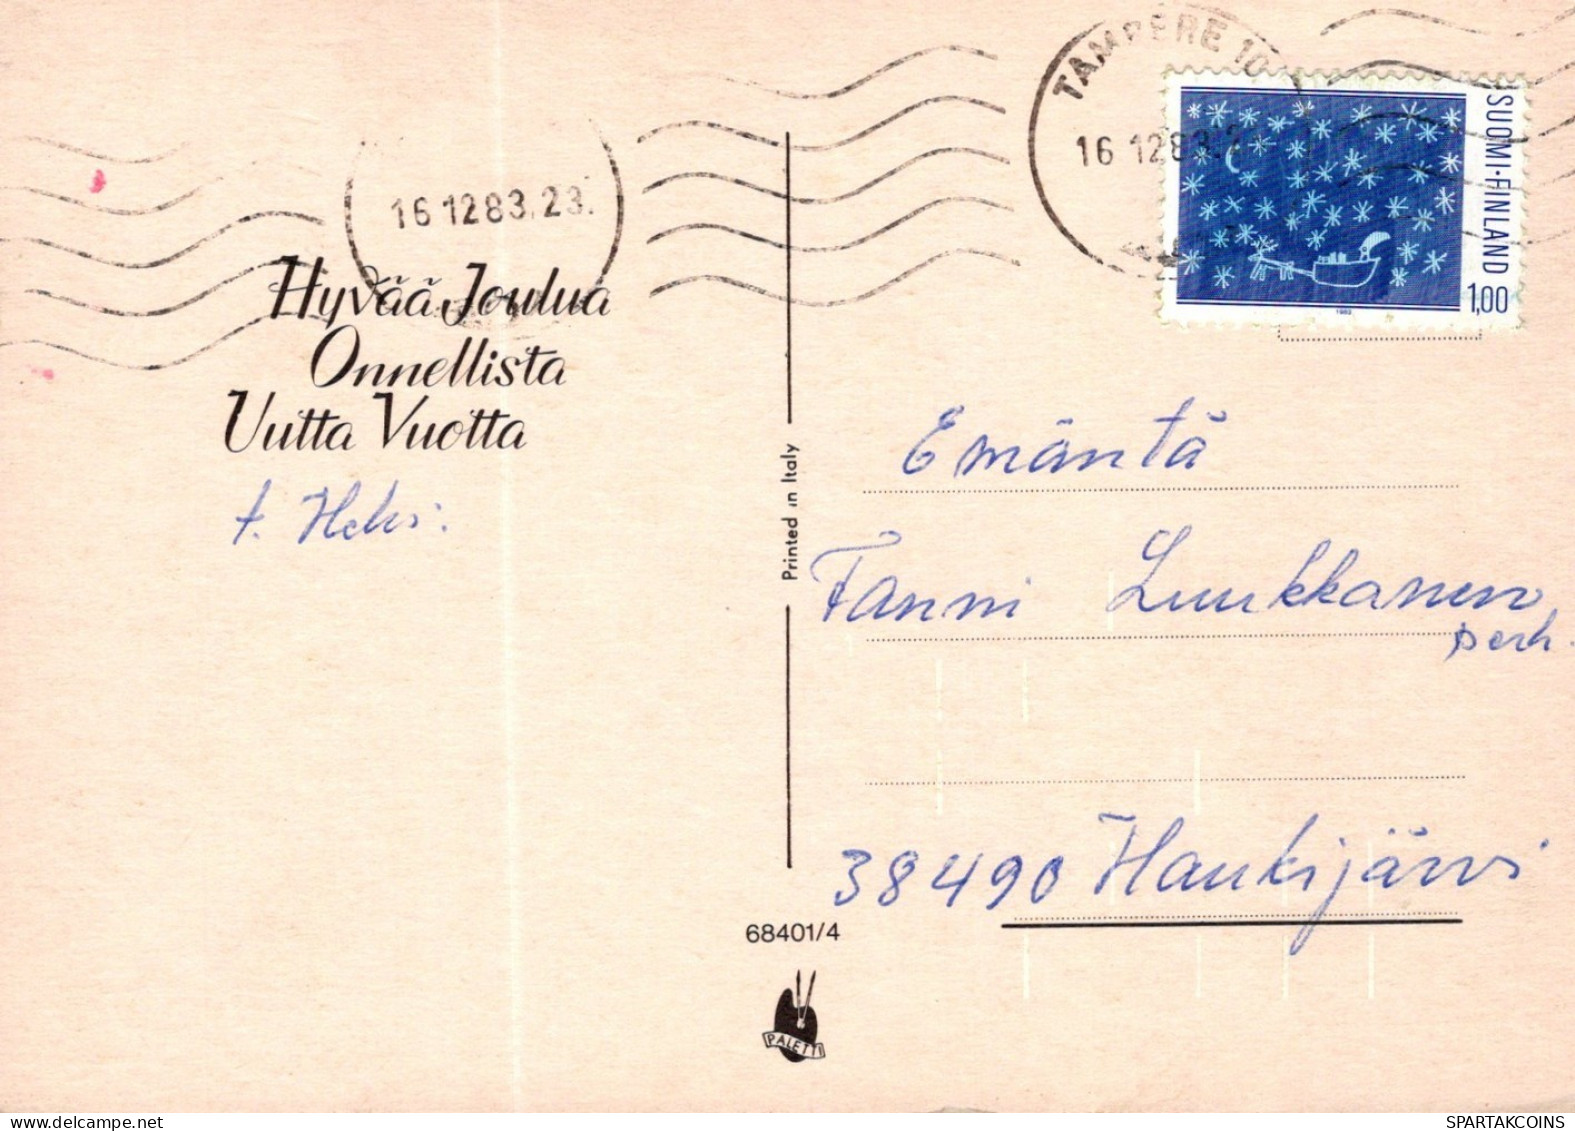 TAMPERE 10
16 12 83. 2
16 12 83. 23.
SUOMI·FINLAND
1,00
1983
Hyvää Joulua
Onnellista
Uutta Vuotta
t. Heks:
Printed in Italy
Emäntä
Fanni Luukkanen
perh.
38490 Haukijärvi
68401/4
PALETTI
SPARTAKCOINS